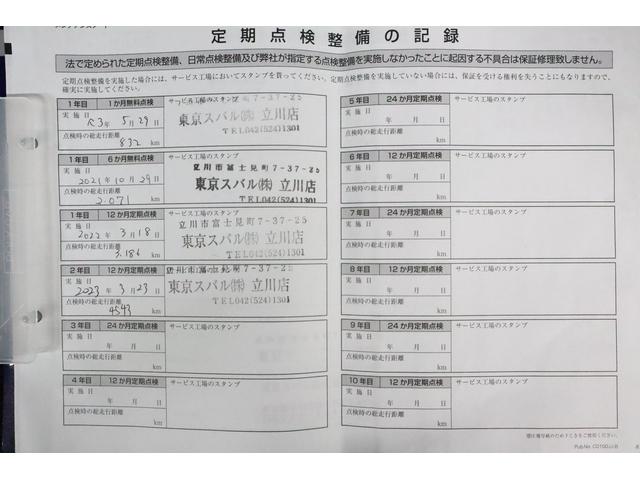 定期点検整備の記録
法で定められた定期点検整備、日常点検整備及び弊社が指定する点検整備を実施しなかったことに起因する不具合は保証修理致しません。
定期点検整備を実施した場合には、サービス工場においてスタンプを貰ってください。定期点検整備を実施していない場合には、保証を受ける権利を失うことにもなりますので、
確実に実施してください。
1年目 1か月無料点検
実施日
R3年 5月29日
点検時の総走行距離
832 km
サービス工場のスタンプ
東京スバル㈱ 立川店
TEL042(524)1301
1年目 6か月無料点検
実施日
2021年 10月29日
点検時の総走行距離
2.071 km
サービス工場のスタンプ
立川市富士見町7-37-25
東京スバル㈱ 立川店
TEL042(524)1301
1年目 12か月定期点検
実施日
2022年 3月18日
点検時の総走行距離
3.186 km
サービス工場のスタンプ
立川市富士見町7-37-25
東京スバル㈱ 立川店
TEL042(524)1301
2年目 12か月定期点検
実施日
2023年 3月23日
点検時の総走行距離
4543 km
立川市富士見町7-37-25
東京スバル㈱ 立川店
TEL042(524)1301
3年目 24か月定期点検
実施日
年 月 日
点検時の総走行距離
km
サービス工場のスタンプ
4年目 12か月定期点検
実施日
年 月 日
点検時の総走行距離
km
サービス工場のスタンプ
5年目 24か月定期点検
実施日
年 月 日
点検時の総走行距離
km
サービス工場のスタンプ
6年目 12か月定期点検
実施日
年 月 日
点検時の総走行距離
km
サービス工場のスタンプ
7年目 24か月定期点検
実施日
年 月 日
点検時の総走行距離
km
サービス工場のスタンプ
8年目 12か月定期点検
実施日
年 月 日
点検時の総走行距離
km
サービス工場のスタンプ
9年目 24か月定期点検
実施日
年 月 日
点検時の総走行距離
km
サービス工場のスタンプ
10年目 12か月定期点検
実施日
年 月 日
点検時の総走行距離
km
サービス工場のスタンプ